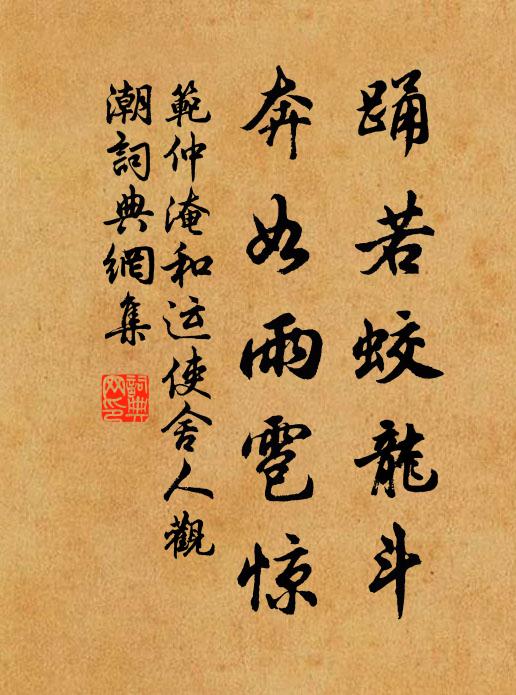 踊若蛟龍斗
奔如雨雹惊
範仲淹和运使舍人觀
潮詞典網集
詞典
网印